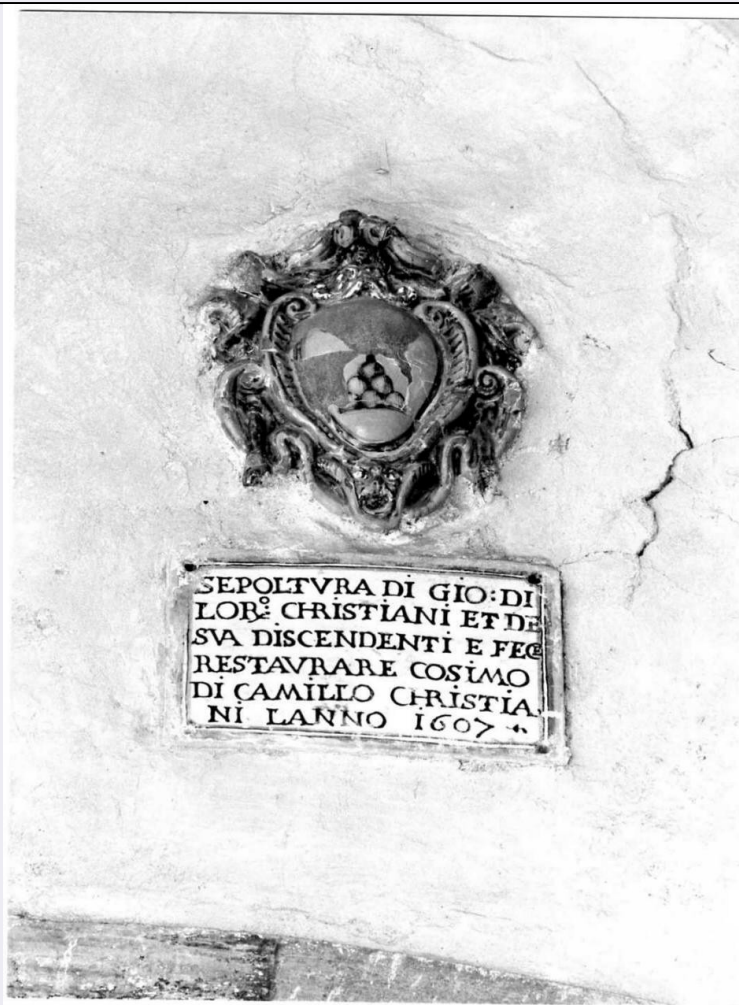 SEPOLTVRA DI GIO: DI
LORº: CHRISTIANI ET DE
SVA DISCENDENTI E FECE
RESTAVRARE COSIMO
DI CAMILLO CHRISTIA
NI LANNO 1607